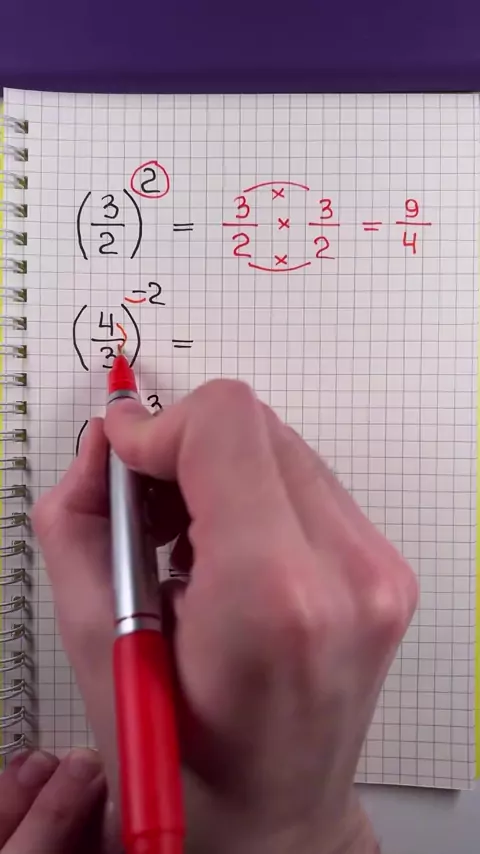 (3/2)² = 3/2 × 3/2 = 9/4
(4/3)⁻² =
( 3